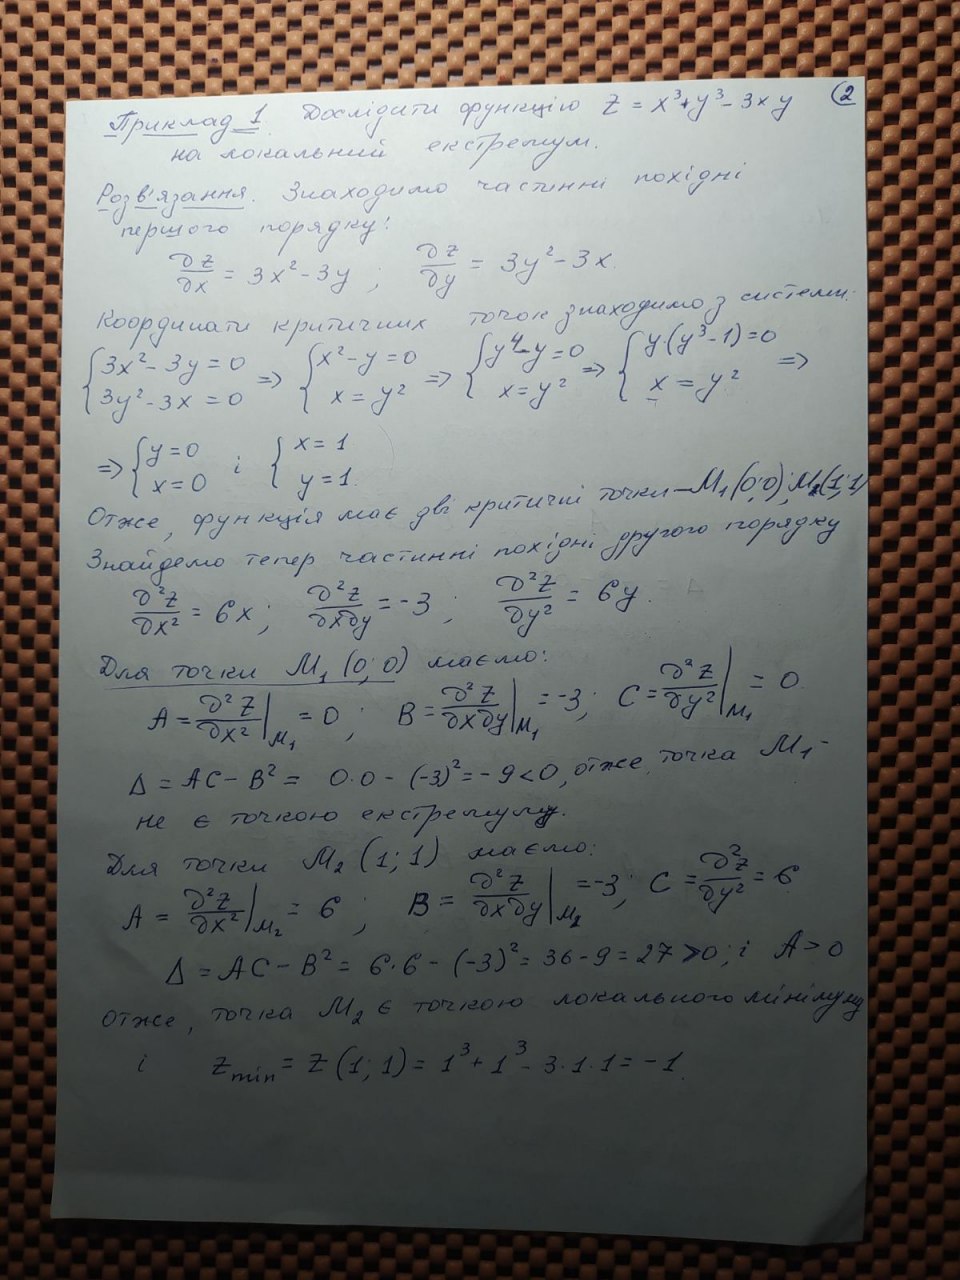 Приклад 1. Дослідити функцію z = x³+y³-3xy ②
на локальний екстремум.
Розв'язання. Знаходимо частинні похідні
першого порядку:
∂z/∂x = 3x²-3y ; ∂z/∂y = 3y²-3x.
Координати критичних точок знаходимо з системи:
{3x²-3y=0 ; 3y²-3x=0 => {x²-y=0 ; x=y² => {y⁴-y=0 ; x=y² => {y·(y³-1)=0 ; x=y² =>
=> {y=0 ; x=0 і {x=1 ; y=1.
Отже, функція має дві критичні точки – M₁(0;0); M₂(1;1)
Знайдемо тепер частинні похідні другого порядку
∂²z/∂x² = 6x ; ∂²z/∂x∂y = -3 ; ∂²z/∂y² = 6y.
Для точки M₁ (0; 0) маємо:
A = ∂²z/∂x²|M₁ = 0 ; B = ∂²z/∂x∂y|M₁ = -3; C = ∂²z/∂y²|M₁ = 0.
Δ = AC - B² = 0·0 - (-3)² = -9 < 0, отже, точка M₁ -
не є точкою екстремуму.
Для точки M₂ (1; 1) маємо:
A = ∂²z/∂x²|M₂ = 6 ; B = ∂²z/∂x∂y|M₂ = -3; C = ∂²z/∂y² = 6.
Δ = AC - B² = 6·6 - (-3)² = 36-9 = 27 > 0; і A > 0
Отже, точка M₂ є точкою локального мінімуму
і z min = z (1; 1) = 1³ + 1³ - 3·1·1 = -1.